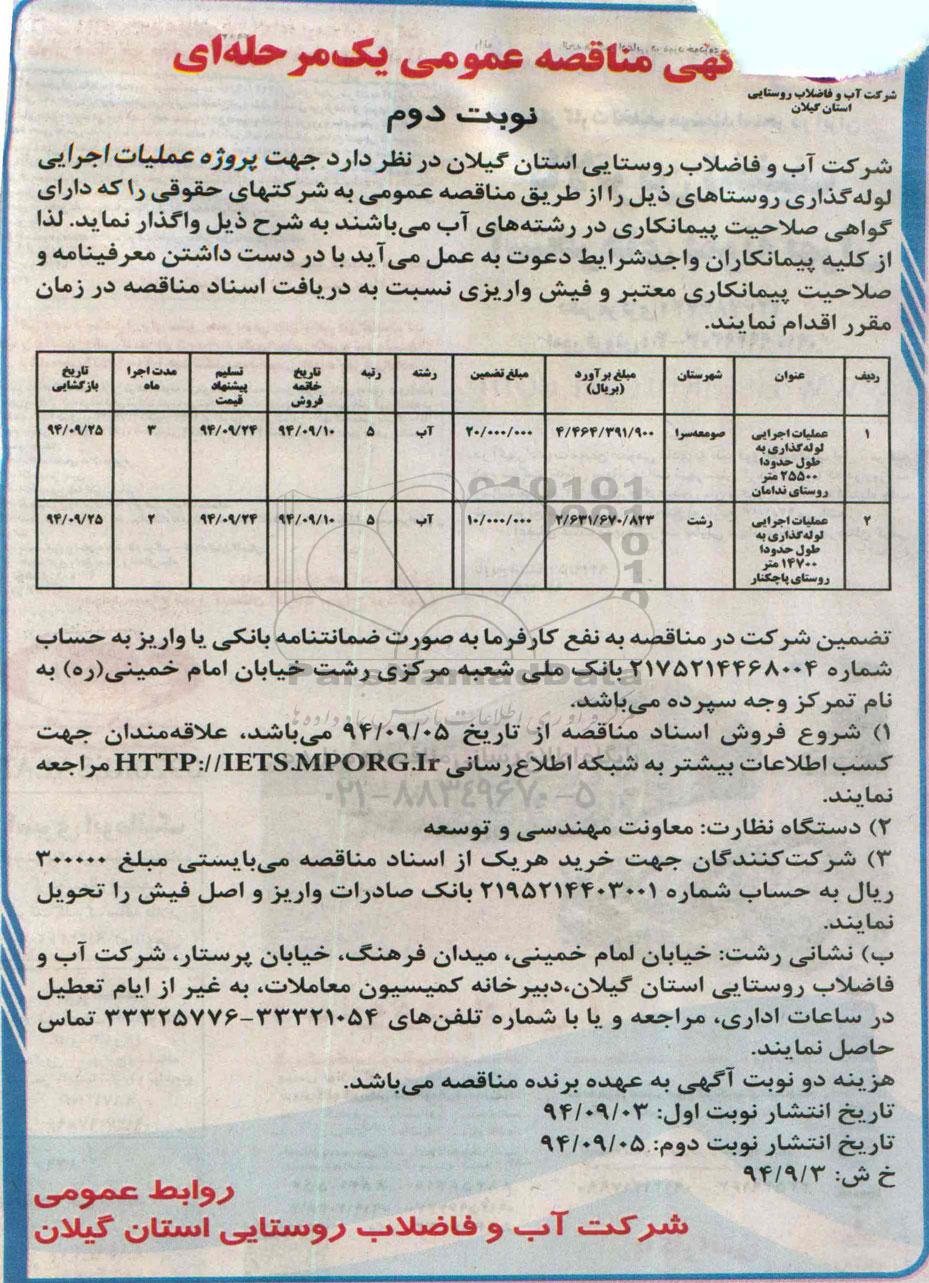 گهی مناقصه عمومی یک‌مرحله‌ای
شرکت آب و فاضلاب روستایی
استان گیلان
نوبت دوم
شرکت آب و فاضلاب روستایی استان گیلان در نظر دارد جهت پروژه عملیات اجرایی
لوله‌گذاری روستاهای ذیل را از طریق مناقصه عمومی به شرکتهای حقوقی را که دارای
گواهی صلاحیت پیمانکاری در رشته‌های آب می‌باشند به شرح ذیل واگذار نماید. لذا
از کلیه پیمانکاران واجدشرایط دعوت به عمل می‌آید با در دست داشتن معرفینامه و
صلاحیت پیمانکاری معتبر و فیش واریزی نسبت به دریافت اسناد مناقصه در زمان
مقرر اقدام نمایند.
ردیف عنوان شهرستان مبلغ برآورد (بریال) مبلغ تضمین رشته رتبه تاریخ خاتمه فروش تسلیم پیشنهاد قیمت مدت اجرا ماه تاریخ بازگشایی
۱ عملیات اجرایی لوله‌گذاری به طول حدودا ۲۵۵۰۰ متر روستای ندامان صومعه‌سرا ۴/۴۶۴/۳۹۱/۹۰۰ ۲۰/۰۰۰/۰۰۰ آب ۵ ۹۴/۰۹/۱۰ ۹۴/۰۹/۲۴ ۳ ۹۴/۰۹/۲۵
۲ عملیات اجرایی لوله‌گذاری به طول حدودا ۱۴۷۰۰ متر روستای پاچکنار رشت ۲/۶۳۱/۶۷۰/۸۲۳ ۱۰/۰۰۰/۰۰۰ آب ۵ ۹۴/۰۹/۱۰ ۹۴/۰۹/۲۴ ۲ ۹۴/۰۹/۲۵
تضمین شرکت در مناقصه به نفع کارفرما به صورت ضمانتنامه بانکی یا واریز به حساب
شماره ۲۱۷۵۲۱۴۴۶۸۰۰۴ بانک ملی شعبه مرکزی رشت خیابان امام خمینی(ره) به
ParsNamadData
نام تمرکز وجه سپرده می‌باشد.
۱) شروع فروش اسناد مناقصه از تاریخ ۹۴/۰۹/۰۵ می‌باشد، علاقه‌مندان جهت
کسب اطلاعات بیشتر به شبکه اطلاع‌رسانی HTTP://IETS.MPORG.Ir مراجعه
نمایند.
۰۲۱-۸۸۳۴۹۶۷۰-۵
۲) دستگاه نظارت: معاونت مهندسی و توسعه
۳) شرکت‌کنندگان جهت خرید هریک از اسناد مناقصه می‌بایستی مبلغ ۳۰۰۰۰۰
ریال به حساب شماره ۲۱۹۵۲۱۴۴۰۳۰۰۱ بانک صادرات واریز و اصل فیش را تحویل
نمایند.
ب) نشانی رشت: خیابان امام خمینی، میدان فرهنگ، خیابان پرستار، شرکت آب و
فاضلاب روستایی استان گیلان،دبیرخانه کمیسیون معاملات، به غیر از ایام تعطیل
در ساعات اداری، مراجعه و یا با شماره تلفن‌های ۳۳۳۲۱۰۵۴-۳۳۳۲۵۷۷۶ تماس
حاصل نمایند.
هزینه دو نوبت آگهی به عهده برنده مناقصه می‌باشد.
تاریخ انتشار نوبت اول: ۹۴/۰۹/۰۳
تاریخ انتشار نوبت دوم: ۹۴/۰۹/۰۵
خ ش: ۹۴/۹/۳
روابط عمومی
شرکت آب و فاضلاب روستایی استان گیلان